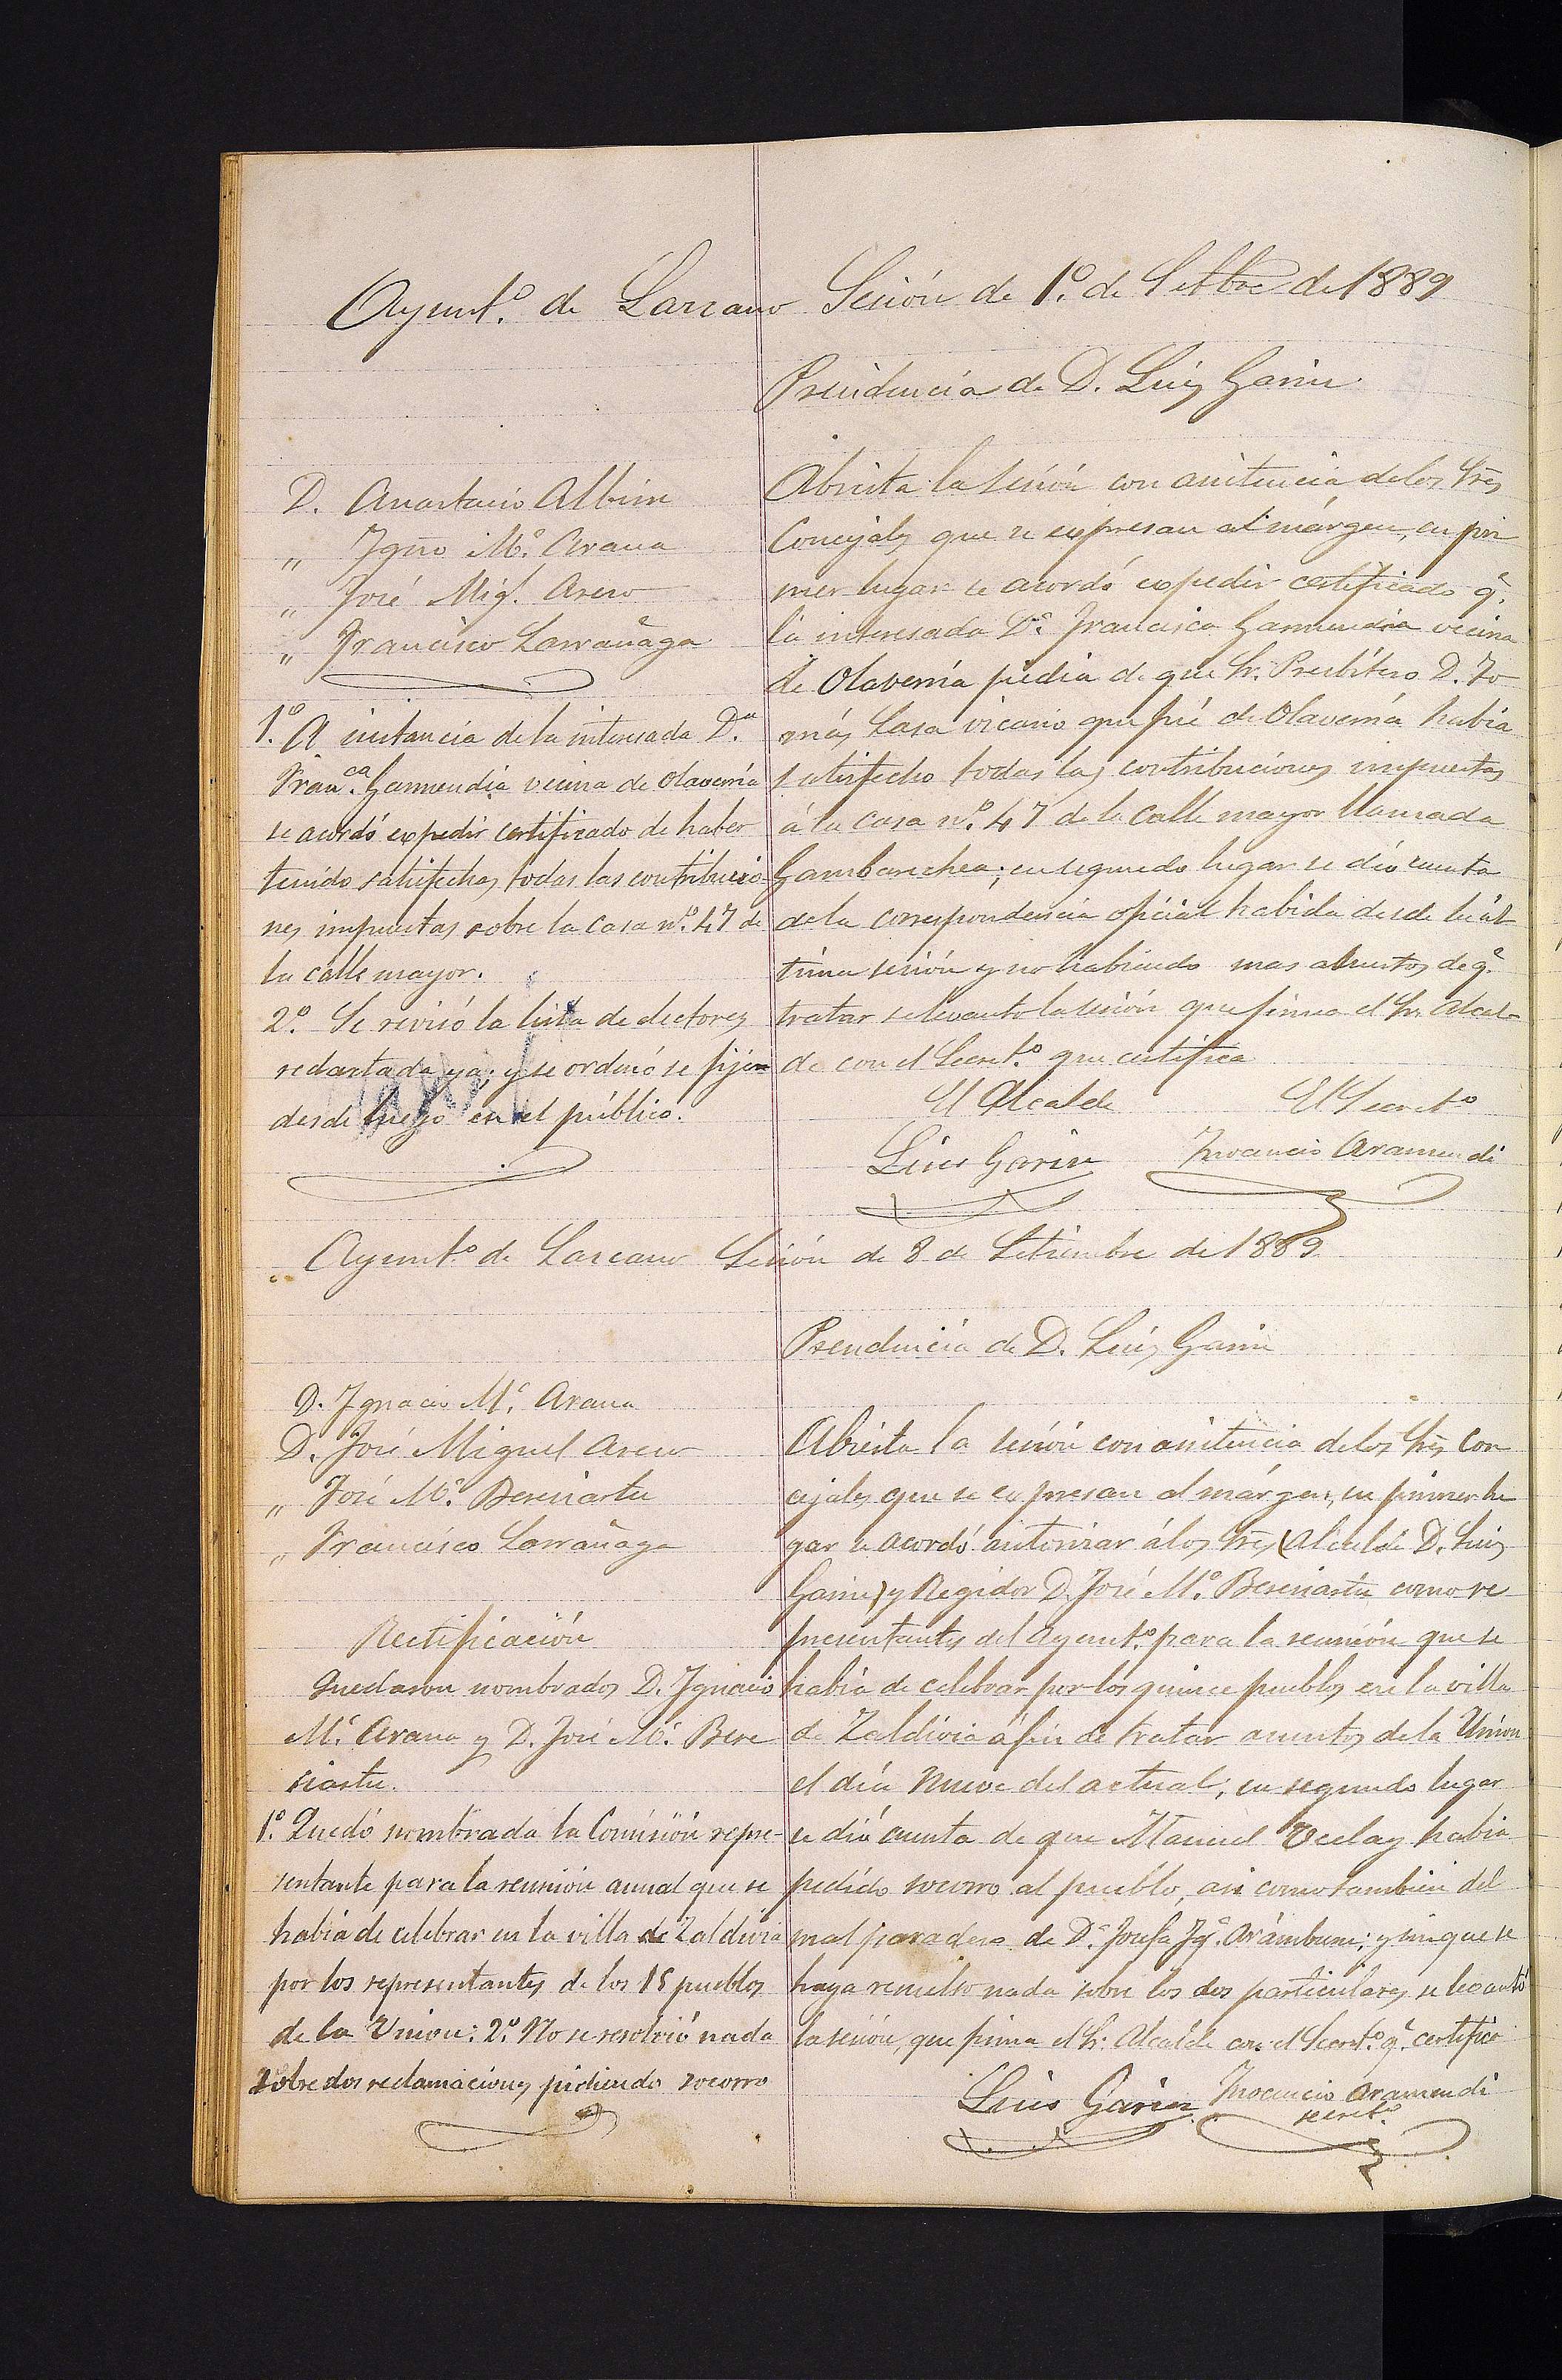 Ayunt.º de Lazcano Sesión de 1º. de Setbre de 1889
Presidencia de D. Luis Garin
D. Anastacio Albisu
„ Igno Mª. Arana
„ José Migl. Asero
„ Francisco Larrañaga
1º. A instancia de la interesada D.ª
Fran.ca Garmendia vecina de Olaverria
se acordó expedir certificado de haber
tenido satisfechas todas las contribucio-
nes impuestas sobre la casa nº. 47 de
la calle mayor.
2º. Se revisó la lista de electores
redactada ya; y se ordenó se fijen
desde luego en el público.
Abierta la sesión con asistencia de los Sres
Concejales que se expresan al márgen, en pri
mer lugar se acordó expedir certificado q.
la interesada Dª. Francisca Garmendia vecina
de Olaverria pedia de que Sr. Presbítero D. To
más Lasa vicario que fué de Olaverria habia
satisfecho todas las contribuciones impuestas
á la casa nº. 47 de la Calle mayor llamada
Gambarechea; en segundo lugar se dio cuenta
de la correspondencia oficial habida desde la úl
tima sesión y no habiendo mas asuntos de q.
tratar se levanto la sesión que firma el Sr. Alcal-
de con el Secret.º que certifica
El Alcalde El Secretº
Luis Garin Inocencio Aramendi
Ayunt.º de Lazcano Sesión de 8 de Setiembre de 1889
Presidencia de D. Luis Garin
D. Ignacio Mª. Arana
D. José Miguel Asero
„ José Mª. Beresiartu
„ Francisco Larrañaga
Rectificación
Quedaron nombrados D. Ignacio
Mª. Arana y D. José Mª. Bere
siartu.
1º. Quedó nombrada la Comisión repre-
sentante para la reunión anual que se
habia de celebrar en la villa de Zaldivia
por los representantes de los 15 pueblos
de la Union: 2º. No se resolvió nada
sobre dos reclamaciones pidiendo socorro
Abierta la sesión con asistencia de los Sres Con
cejales que se expresan al márgen, en primer lu
gar se acordó autorizar á los Sres (Alcalde D. Luis
Garin) y Regidor D. José Mª. Beresiartu como re
presentantes del Ayunt.º para la reunión que se
habia de celebrar por los quince pueblos en la villa
de Zaldivia á fin de tratar asuntos de la Union
el día nueve del actual; en segundo lugar
se dió cuenta de que Manuel habia
pedido socorro al pueblo, asi como tambien del
mal paradero de Dª. Josefa Jª. Arámburu; y sin que se
haya resuelto nada sobre los dos particulares se levantó
la sesión, que firma el Sr. Alcalde con el Secretº. q. certifico
Luis Garin Inocencio Aramendi
secretº